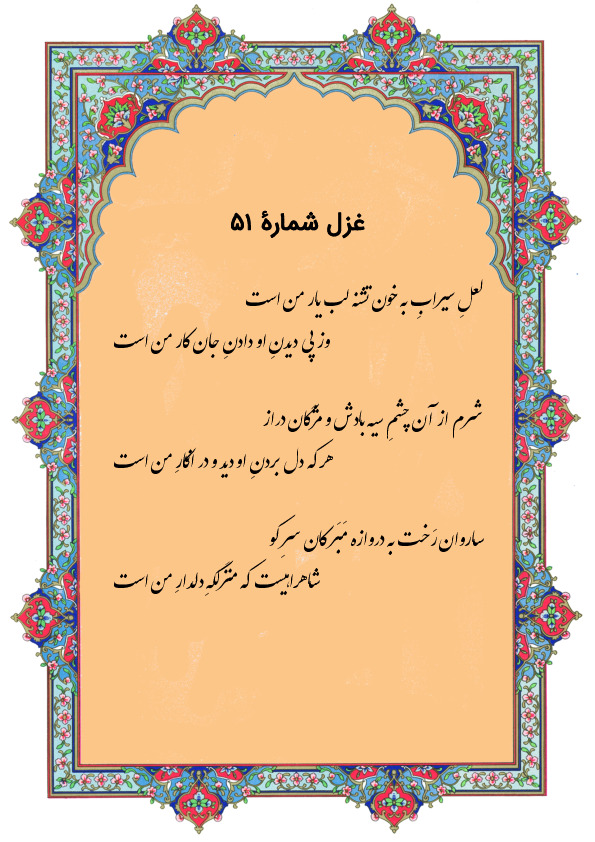 غزل شمارهٔ ۵۱
لعلِ سیرابِ به خون تشنه لب یار من است
وز پی دیدنِ او دادنِ جان کار من است
شرم از آن چشمِ سیه بادش و مژگان دراز
هر که دل بردنِ او دید و در انکارِ من است
ساروان رَخت به دروازه مَبَر کان سرِ کو
شاهراهیست که منزلگهِ دلدارِ من است